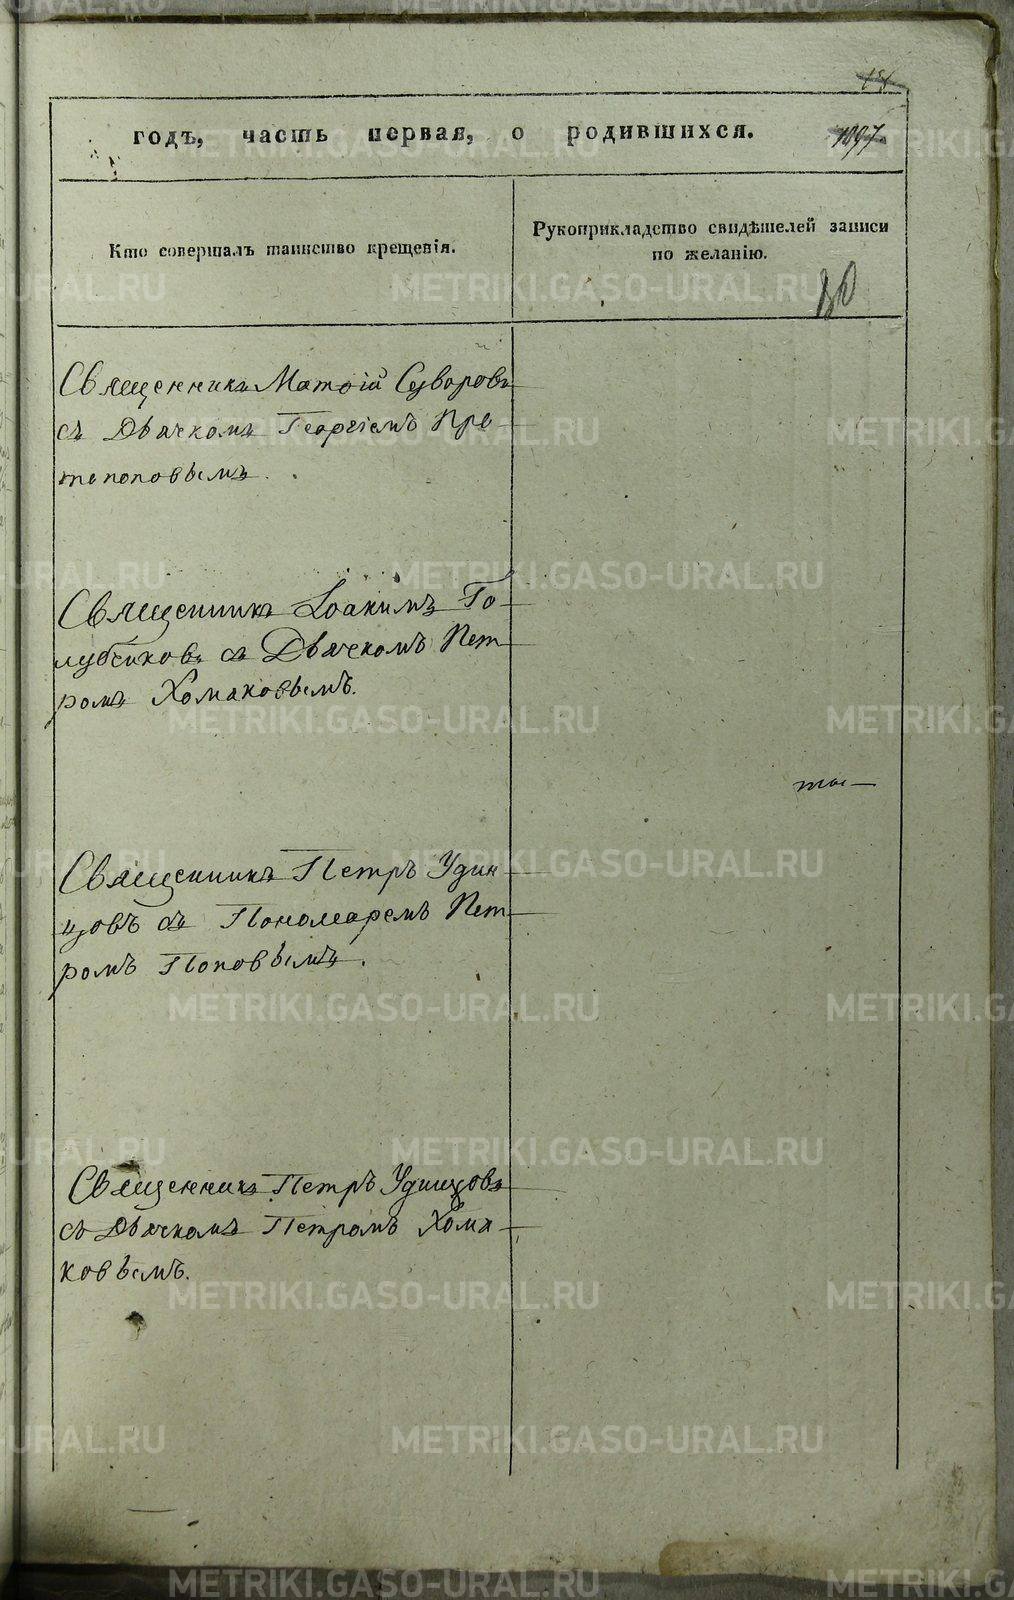 годъ, часть первая, о родившихся.
1097
Кто совершалъ таинство крещенія.
Рукоприкладство свидѣтелей записи
по желанію.
80
Священникъ Матѳій Суворовъ
съ Дьячкомъ Георгіемъ Про-
топоповымъ.
Священникъ Іоакимъ Го-
лубчиковъ съ Дьячкомъ Пет-
ромъ Хомяковымъ.
ты—
Священникъ Петръ Удин-
цовъ съ Пономаремъ Пет-
ромъ Поповымъ.
Священникъ Петръ Удинцовъ
съ Дьячкомъ Петромъ Хомя-
ковымъ.
METRIKI.GASO-URAL.RU